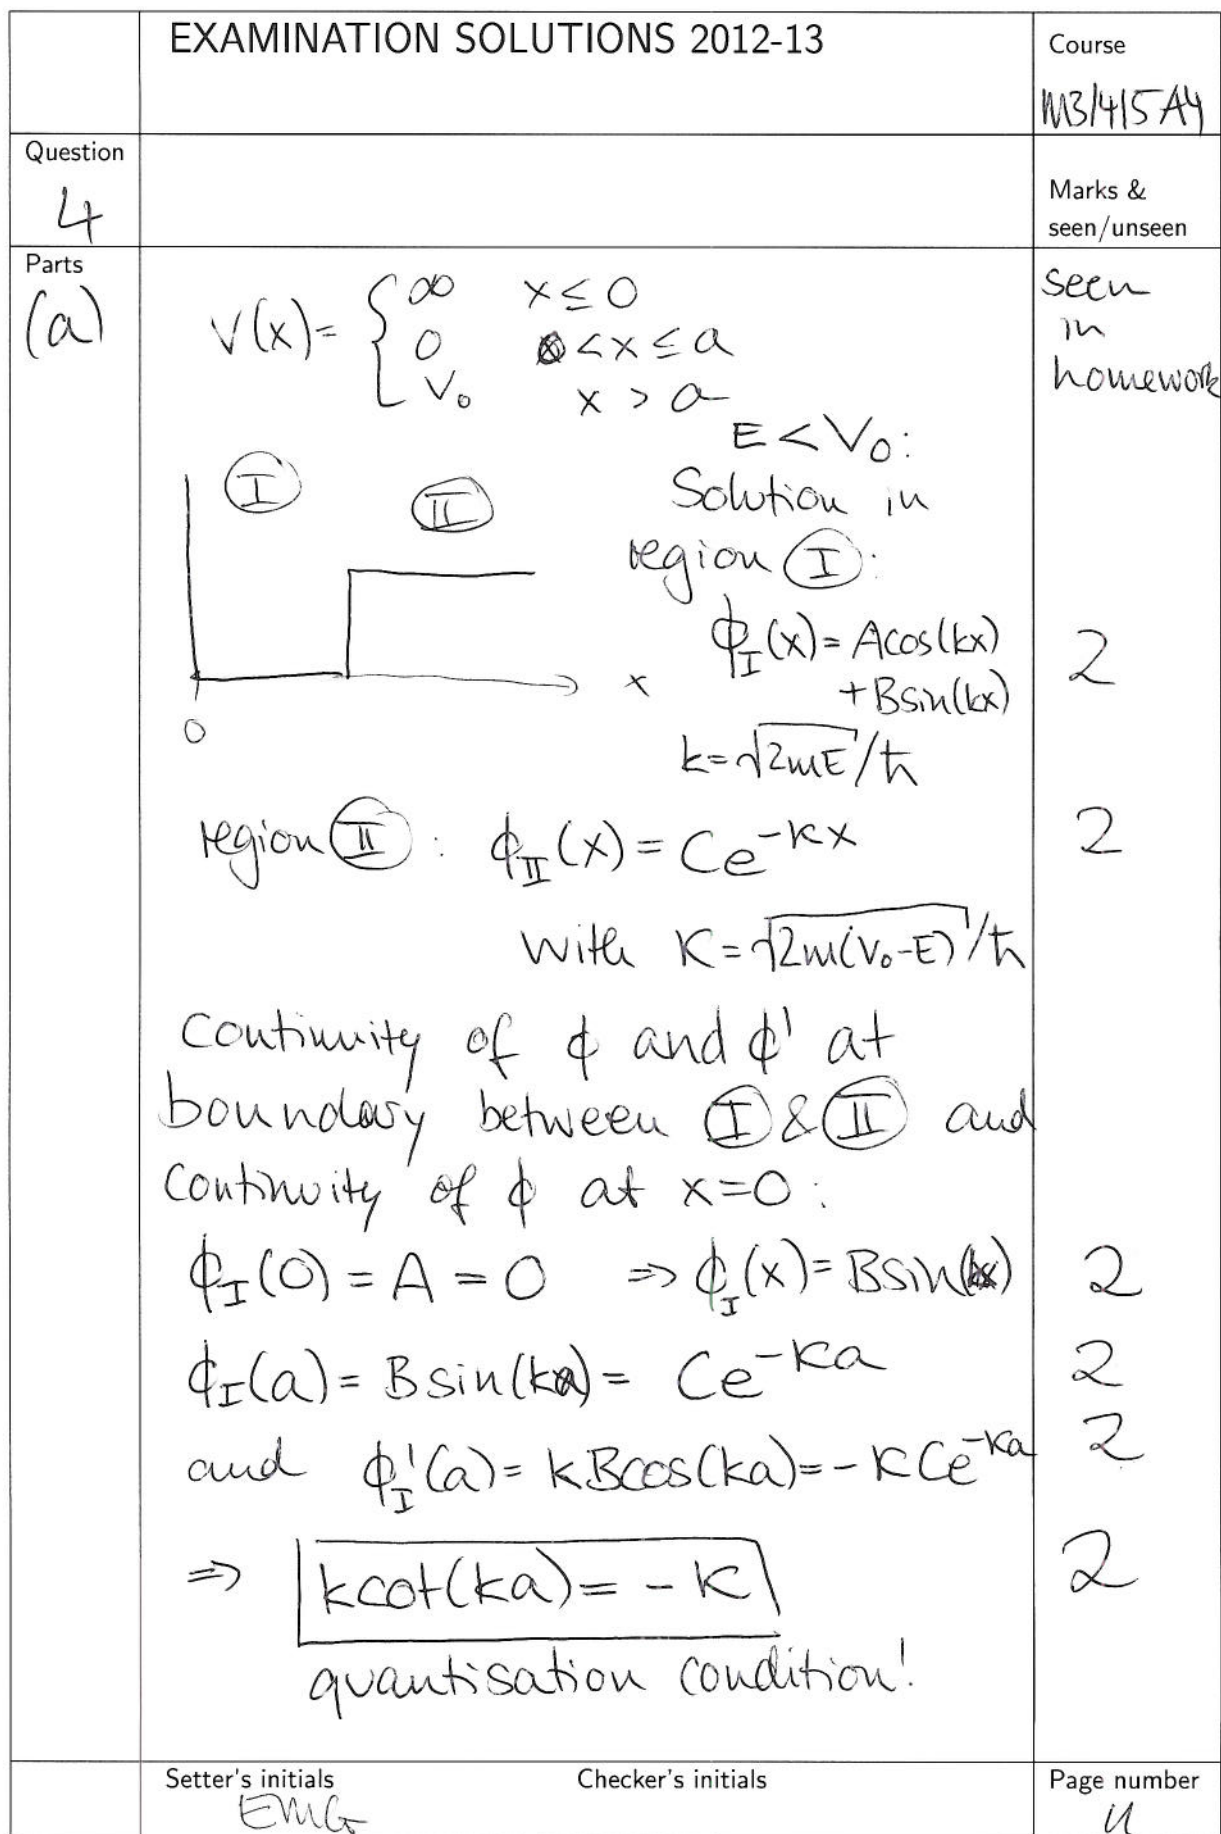 EXAMINATION SOLUTIONS 2012-13
Course
M3/4/5 A4
Question
4
Marks &
seen/unseen
Parts
(a)
V(x) = { ∞ x ≤ 0
0 0 < x ≤ a
V₀ x > a
seen
in
homework
E < V₀:
Solution in
region Ⓘ:
I
II
ϕ_I(x) = A cos(kx)
+ B sin(kx)
2
x
0
k = √2mE / ħ
region II : ϕ_II(x) = C e^{-κx}
2
with κ = √2m(V₀-E) / ħ
Continuity of ϕ and ϕ' at
boundary between I & II and
Continuity of ϕ at x=0 :
ϕ_I(0) = A = 0 ⇒ ϕ_I(x) = B sin(kx)
2
ϕ_I(a) = B sin(ka) = C e^{-κa}
2
and ϕ_I'(a) = k B cos(ka) = - κ C e^{-κa}
2
⇒ k cot(ka) = - κ
2
quantisation condition!
Setter's initials
EMG
Checker's initials
Page number